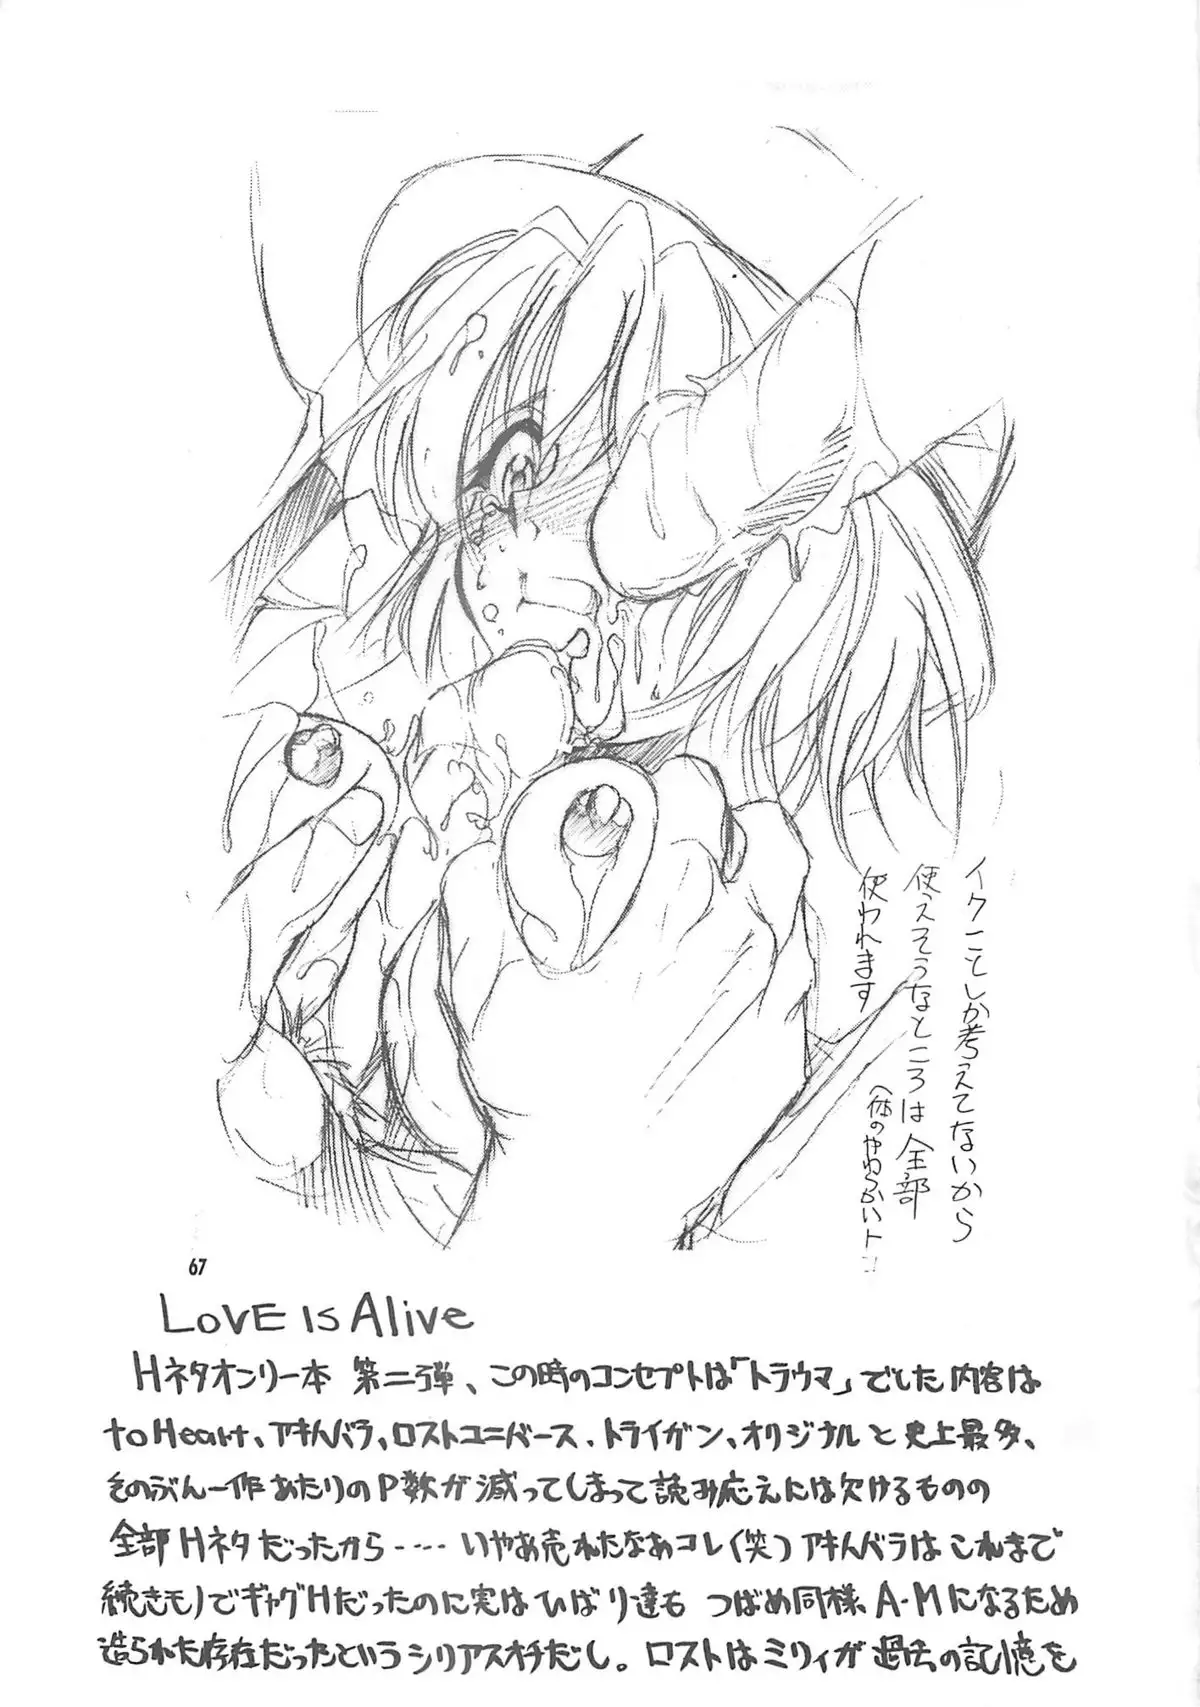 イクことしか考えてないから
使えそうなところは全部
使われます
(体のやわらかいト
67
LOVE IS Alive
Hネタオンリー本 第二弾、この時のコンセプトは「トラウマ」でした内容は
to Heart、アキハバラ、ロストユニバース、トライガン、オリジナルと史上最多、
そのぶん一作あたりのP数が減ってしまって読み応えには欠けるものの
全部Hネタだったから‥‥いやあ売れたなあコレ(笑)アキハバラはこれまで
続きモノでギャグHだったのに実はひばり達も つばめ同様、A・Mになるため
造られた存在だったというシリアスオチだし。ロストはミリィが過去の記憶を